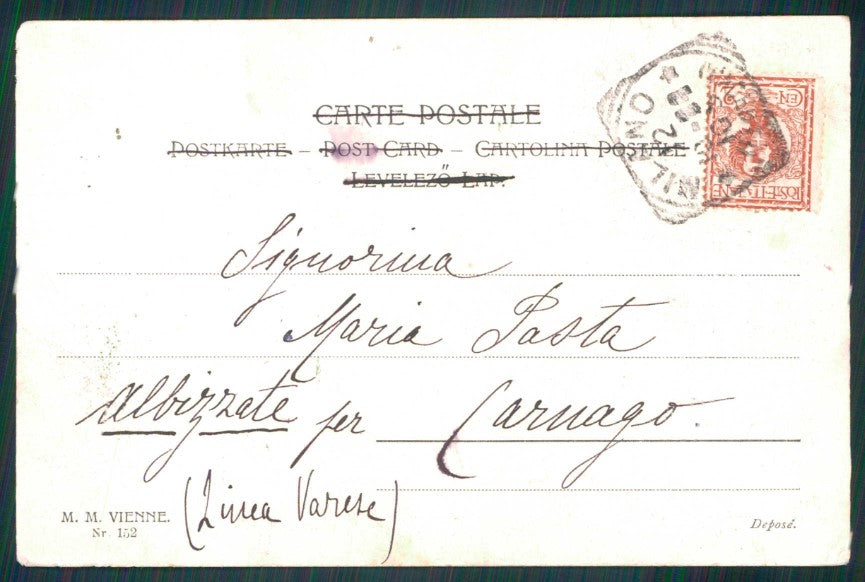 CARTE POSTALE
POSTKARTE – POST CARD – CARTOLINA POSTALE
LEVELEZŐ LAP.
MILANO
CEN 2
POSTE ITALIANE
Signorina
Maria Pasta
Albizzate per Carnago.
(Linea Varese)
M. M. VIENNE.
Nr. 152
Deposé.